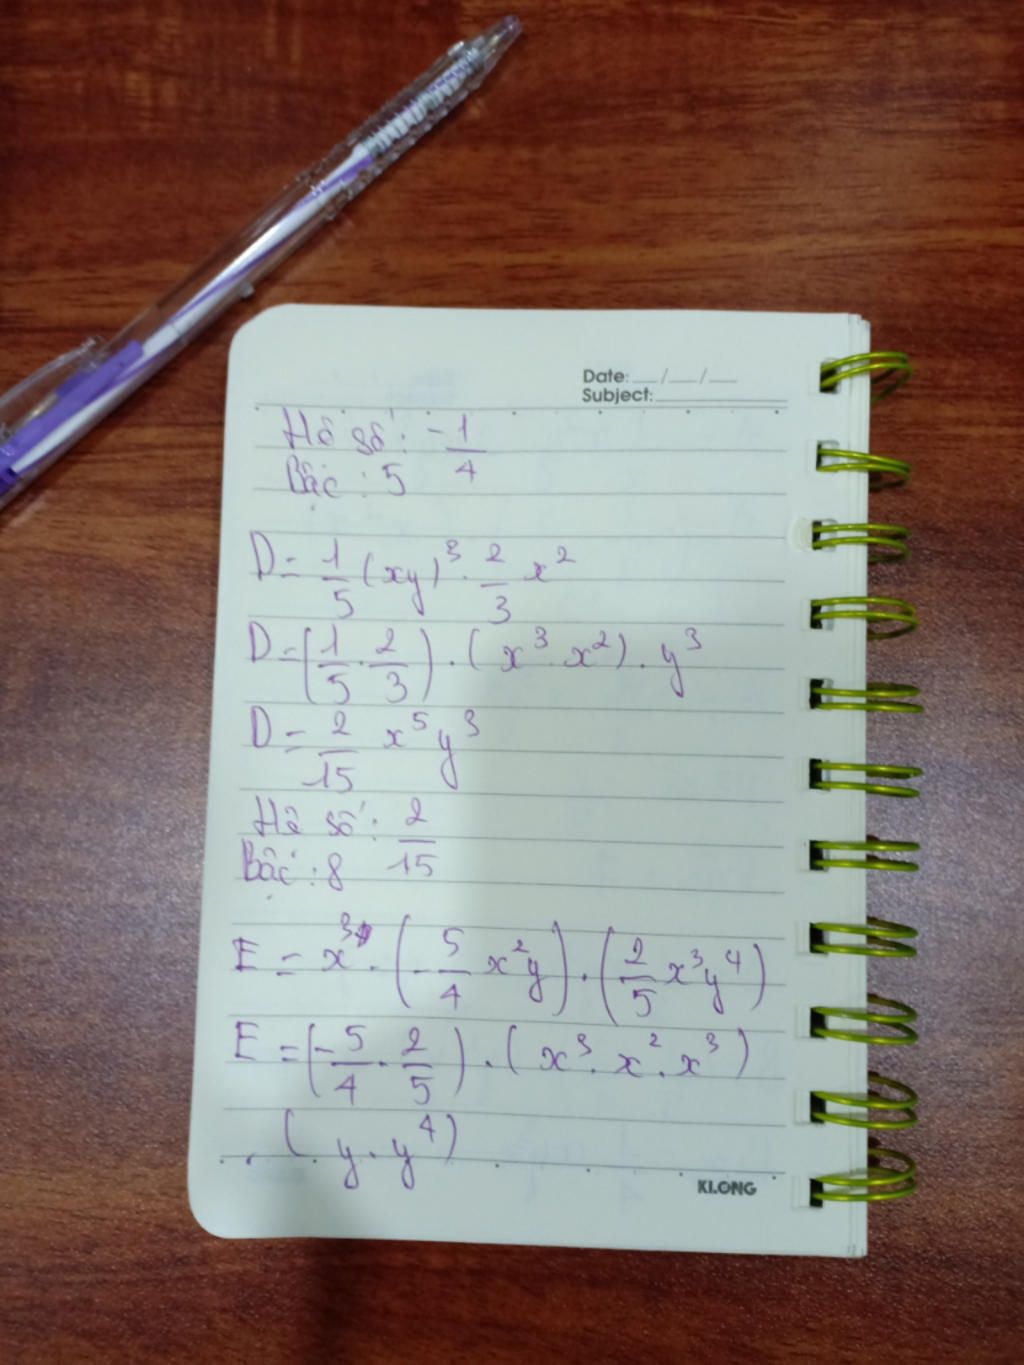 Date: __/__/__
Subject:
Hệ số: -1/4
Bậc: 5
D = 1/5 (xy)³ . 2/3 x²
D = (1/5 . 2/3) . (x³ . x²) . y³
D = 2/15 x⁵y³
Hệ số: 2/15
Bậc: 8
E = x³ . (-5/4 x²y) . (2/5 x³y⁴)
E = (-5/4 . 2/5) . (x³ . x² . x³)
. (y . y⁴)
KLONG